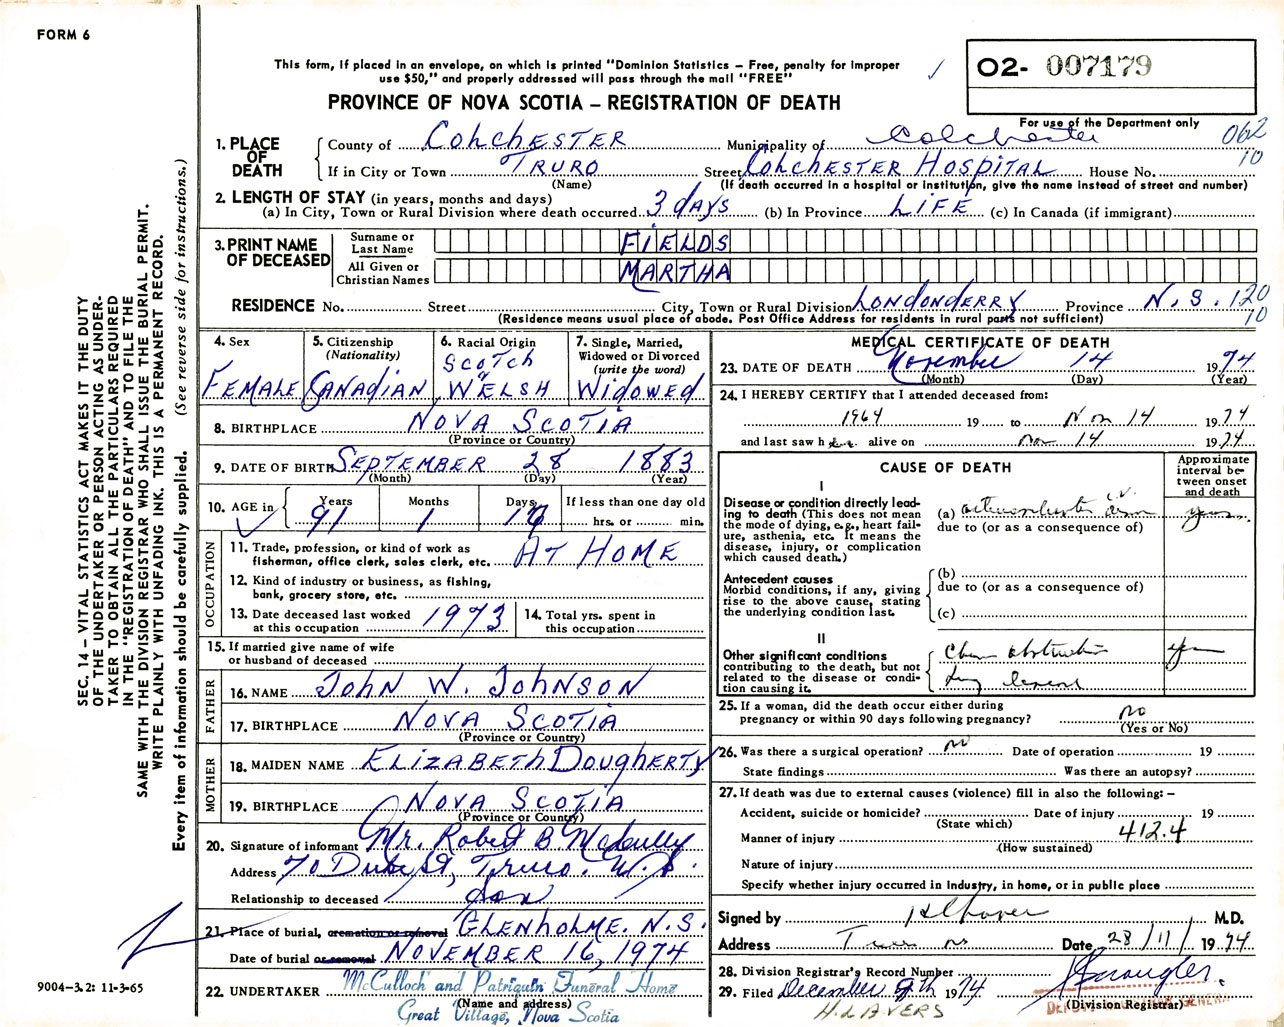 FORM 6
This form, if placed in an envelope, on which is printed "Dominion Statistics – Free, penalty for improper
use $50," and properly addressed will pass through the mail "FREE"
PROVINCE OF NOVA SCOTIA – REGISTRATION OF DEATH
02- 007179
For use of the Department only
062
10
1. PLACE OF DEATH
County of COLCHESTER Municipality of Colchester
If in City or Town TRURO Street COLCHESTER HOSPITAL House No.
(Name) (If death occurred in a hospital or institution, give the name instead of street and number)
2. LENGTH OF STAY (in years, months and days)
(a) In City, Town or Rural Division where death occurred 3 days (b) In Province LIFE (c) In Canada (if immigrant)
3. PRINT NAME OF DECEASED
Surname or Last Name FIELDS
All Given or Christian Names MARTHA
RESIDENCE No. Street City, Town or Rural Division LONDONDERRY Province N.S. 120
10
(Residence means usual place of abode. Post Office Address for residents in rural parts not sufficient)
4. Sex FEMALE
5. Citizenship (Nationality) CANADIAN
6. Racial Origin SCOTCH & WELSH
7. Single, Married, Widowed or Divorced (write the word) WIDOWED
8. BIRTHPLACE NOVA SCOTIA
(Province or Country)
9. DATE OF BIRTH SEPTEMBER 28 1883
(Month) (Day) (Year)
10. AGE in Years 91 Months 1 Days If less than one day old
hrs. or min.
OCCUPATION
11. Trade, profession, or kind of work as
fisherman, office clerk, sales clerk, etc. AT HOME
12. Kind of industry or business, as fishing,
bank, grocery store, etc.
13. Date deceased last worked
at this occupation 1973
14. Total yrs. spent in
this occupation
15. If married give name of wife
or husband of deceased
FATHER
16. NAME JOHN W. JOHNSON
17. BIRTHPLACE NOVA SCOTIA
(Province or Country)
MOTHER
18. MAIDEN NAME ELIZABETH DOUGHERTY
19. BIRTHPLACE NOVA SCOTIA
(Province or Country)
20. Signature of informant Mr. Robert B McCully
Address 70 St, Truro. N.S.
Relationship to deceased Son
21. Place of burial, cremation or removal GLENHOLME. N.S.
Date of burial or removal NOVEMBER 16, 1974
22. UNDERTAKER McCulloch and Patriquin Funeral Home
(Name and address)
Great Village, Nova Scotia
MEDICAL CERTIFICATE OF DEATH
23. DATE OF DEATH November 14 1974
(Month) (Day) (Year)
24. I HEREBY CERTIFY that I attended deceased from:
1964 19 to Nov 14 1974
and last saw her alive on Nov 14 1974
CAUSE OF DEATH
Approximate interval between onset and death
I
Disease or condition directly lead-
ing to death (This does not mean
the mode of dying, e.g., heart fail-
ure, asthenia, etc. It means the
disease, injury, or complication
which caused death.)
(a) C.V. years
due to (or as a consequence of)
Antecedent causes
Morbid conditions, if any, giving
rise to the above cause, stating
the underlying condition last.
(b)
due to (or as a consequence of)
(c)
II
Other significant conditions
contributing to the death, but not
related to the disease or condi-
tion causing it.
Chronic obstructive
lung disease
years
25. If a woman, did the death occur either during
pregnancy or within 90 days following pregnancy? no
(Yes or No)
26. Was there a surgical operation? no Date of operation 19
State findings Was there an autopsy?
27. If death was due to external causes (violence) fill in also the following: –
Accident, suicide or homicide? Date of injury 19
(State which)
Manner of injury 412.4
(How sustained)
Nature of injury
Specify whether injury occurred in industry, in home, or in public place
Signed by M.D.
Address Truro NS Date 28/11/1974
28. Division Registrar's Record Number
29. Filed December 9th 1974
(Division Registrar)
H. LAVERS
SEC. 14 – VITAL STATISTICS ACT MAKES IT THE DUTY
OF THE UNDERTAKER OR PERSON ACTING AS UNDER-
TAKER TO OBTAIN ALL THE PARTICULARS REQUIRED
IN THE "REGISTRATION OF DEATH" AND TO FILE THE
SAME WITH THE DIVISION REGISTRAR WHO SHALL ISSUE THE BURIAL PERMIT.
WRITE PLAINLY WITH UNFADING INK. THIS IS A PERMANENT RECORD.
Every item of information should be carefully supplied. (See reverse side for instructions.)
9004-3.2: 11-3-65